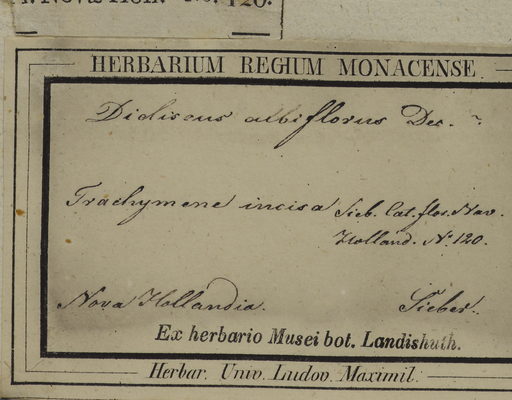 Novæ Holl. No. 120.
HERBARIUM REGIUM MONACENSE
Didiscus albiflorus Dec.
Trachymene incisa Sieb. Cat. flor. Nov.
Holland. No 120.
Nova Hollandia. Sieber.
Ex herbario Musei bot. Landishuth.
Herbar. Univ. Ludov. Maximil.